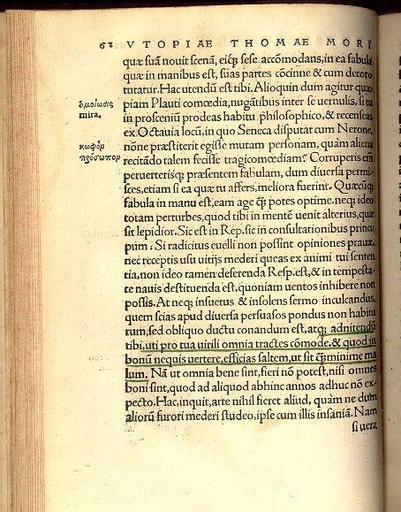 62 VTOPIAE THOMAE MORI
quæ suã novit scenã, eiq́; sese accõmodans, in ea fabula
quæ in manibus est, suas partes cõcinne & cum decoro
tutatur. Hac utendũ est tibi. Alioquin dum agitur quæ
ὁμοίωσις
piam Plauti comœdia, nugãtibus inter se uernulis, si tu
mira.
in prosceniũ prodeas habitu philosophico, & recenseas
ex Octauia locũ, in quo Seneca disputat cum Nerone,
κωφὸν
nõne præstiterit egisse mutam personam, quàm aliena
πρόσωπον
recitãdo talem fecisse tragicomœdiam? Corruperis em̃
peruerterisq́; præsentem fabulam, dum diuersa permi-
sces, etiam si ea quæ tu affers, meliora fuerint. Quæcũq;
fabula in manu est, eam age q̃; potes optime. neq; ideo
totam perturbes, quod tibi in mentẽ uenit alterius, quæ
sit lepidior. Sic est in Rep. sic in consultationibus princi
pum. Si radicitus euelli non possint opiniones prauæ,
nec receptis usu uitijs mederi queas ex animi tui senten
tia, non ideo tamen deserenda Resp. est, & in tempesta-
te nauis destituenda est, quoniam uentos inhibere non
possis. At neq; insuetus & insolens sermo inculcandus,
quem scias apud diuersa persuasos pondus non habitu
rum, sed obliquo ductu conandum est, atq; adnitendũ
tibi, uti pro tua uirili omnia tractes cõmode, & quod in
bonũ nequis uertere, efficias saltem, ut sit q̃; minime ma
lum. Nã ut omnia bene sint, fieri nõ potest, nisi omnes
boni sint, quod ad aliquod abhinc annos adhuc nõ ex-
pecto. Hac, inquit, arte nihil fieret aliud, quàm ne dum
aliorũ furori mederi studeo, ipse cum illis insaniã. Nam
si uera